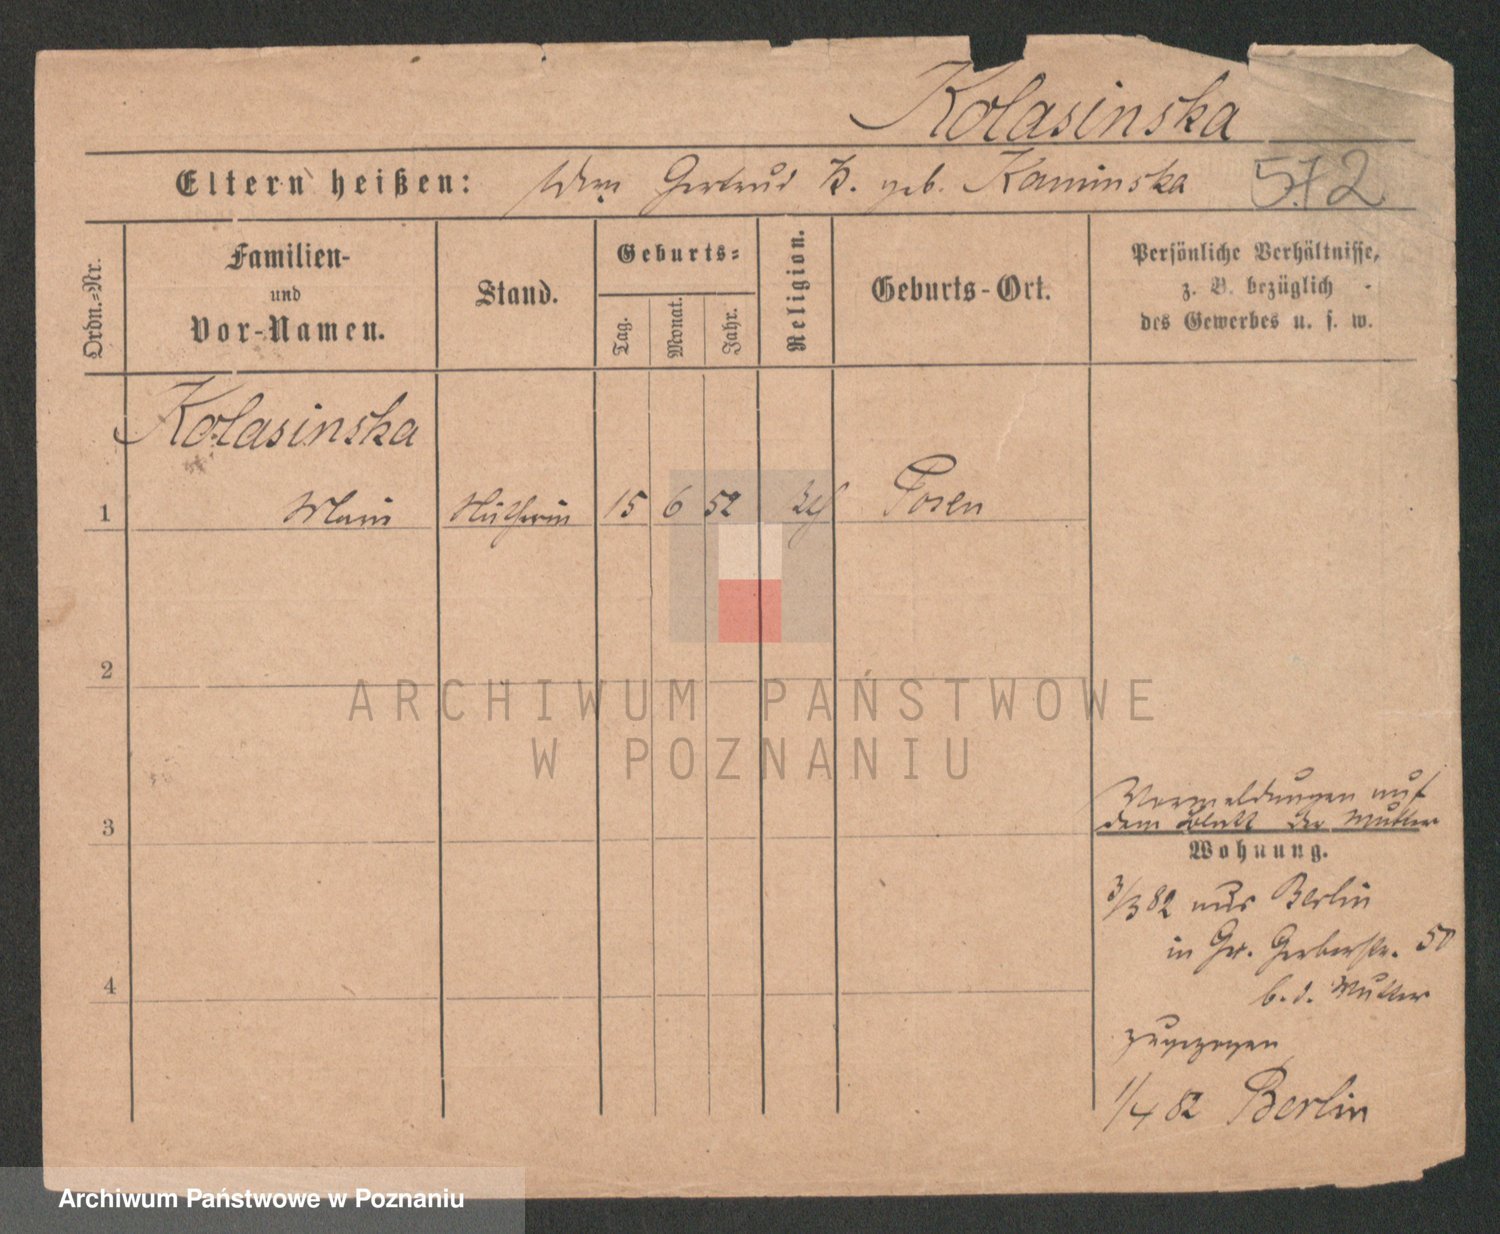 Kolasinska
Eltern heißen: Wwe Gertrud K. geb. Kaminska 572
Ordn.-Nr.
Familien-
und
Vor-Namen.
Stand.
Geburts-
Tag.
Monat.
Jahr.
Religion.
Geburts-Ort.
Persönliche Verhältnisse,
z. B. bezüglich
des Gewerbes u. s. w.
Kolasinska
1 Marie 15 6 52 Posen
2
3
4
Vormeldungen auf
dem Blatt der Mutter
Wohnung.
3/3 82 aus Berlin
in Gr. Gerberstr. 50
b. d. Mutter
zugezogen
1/4 82 Berlin
ARCHIWUM PAŃSTWOWE
W POZNANIU
Archiwum Państwowe w Poznaniu